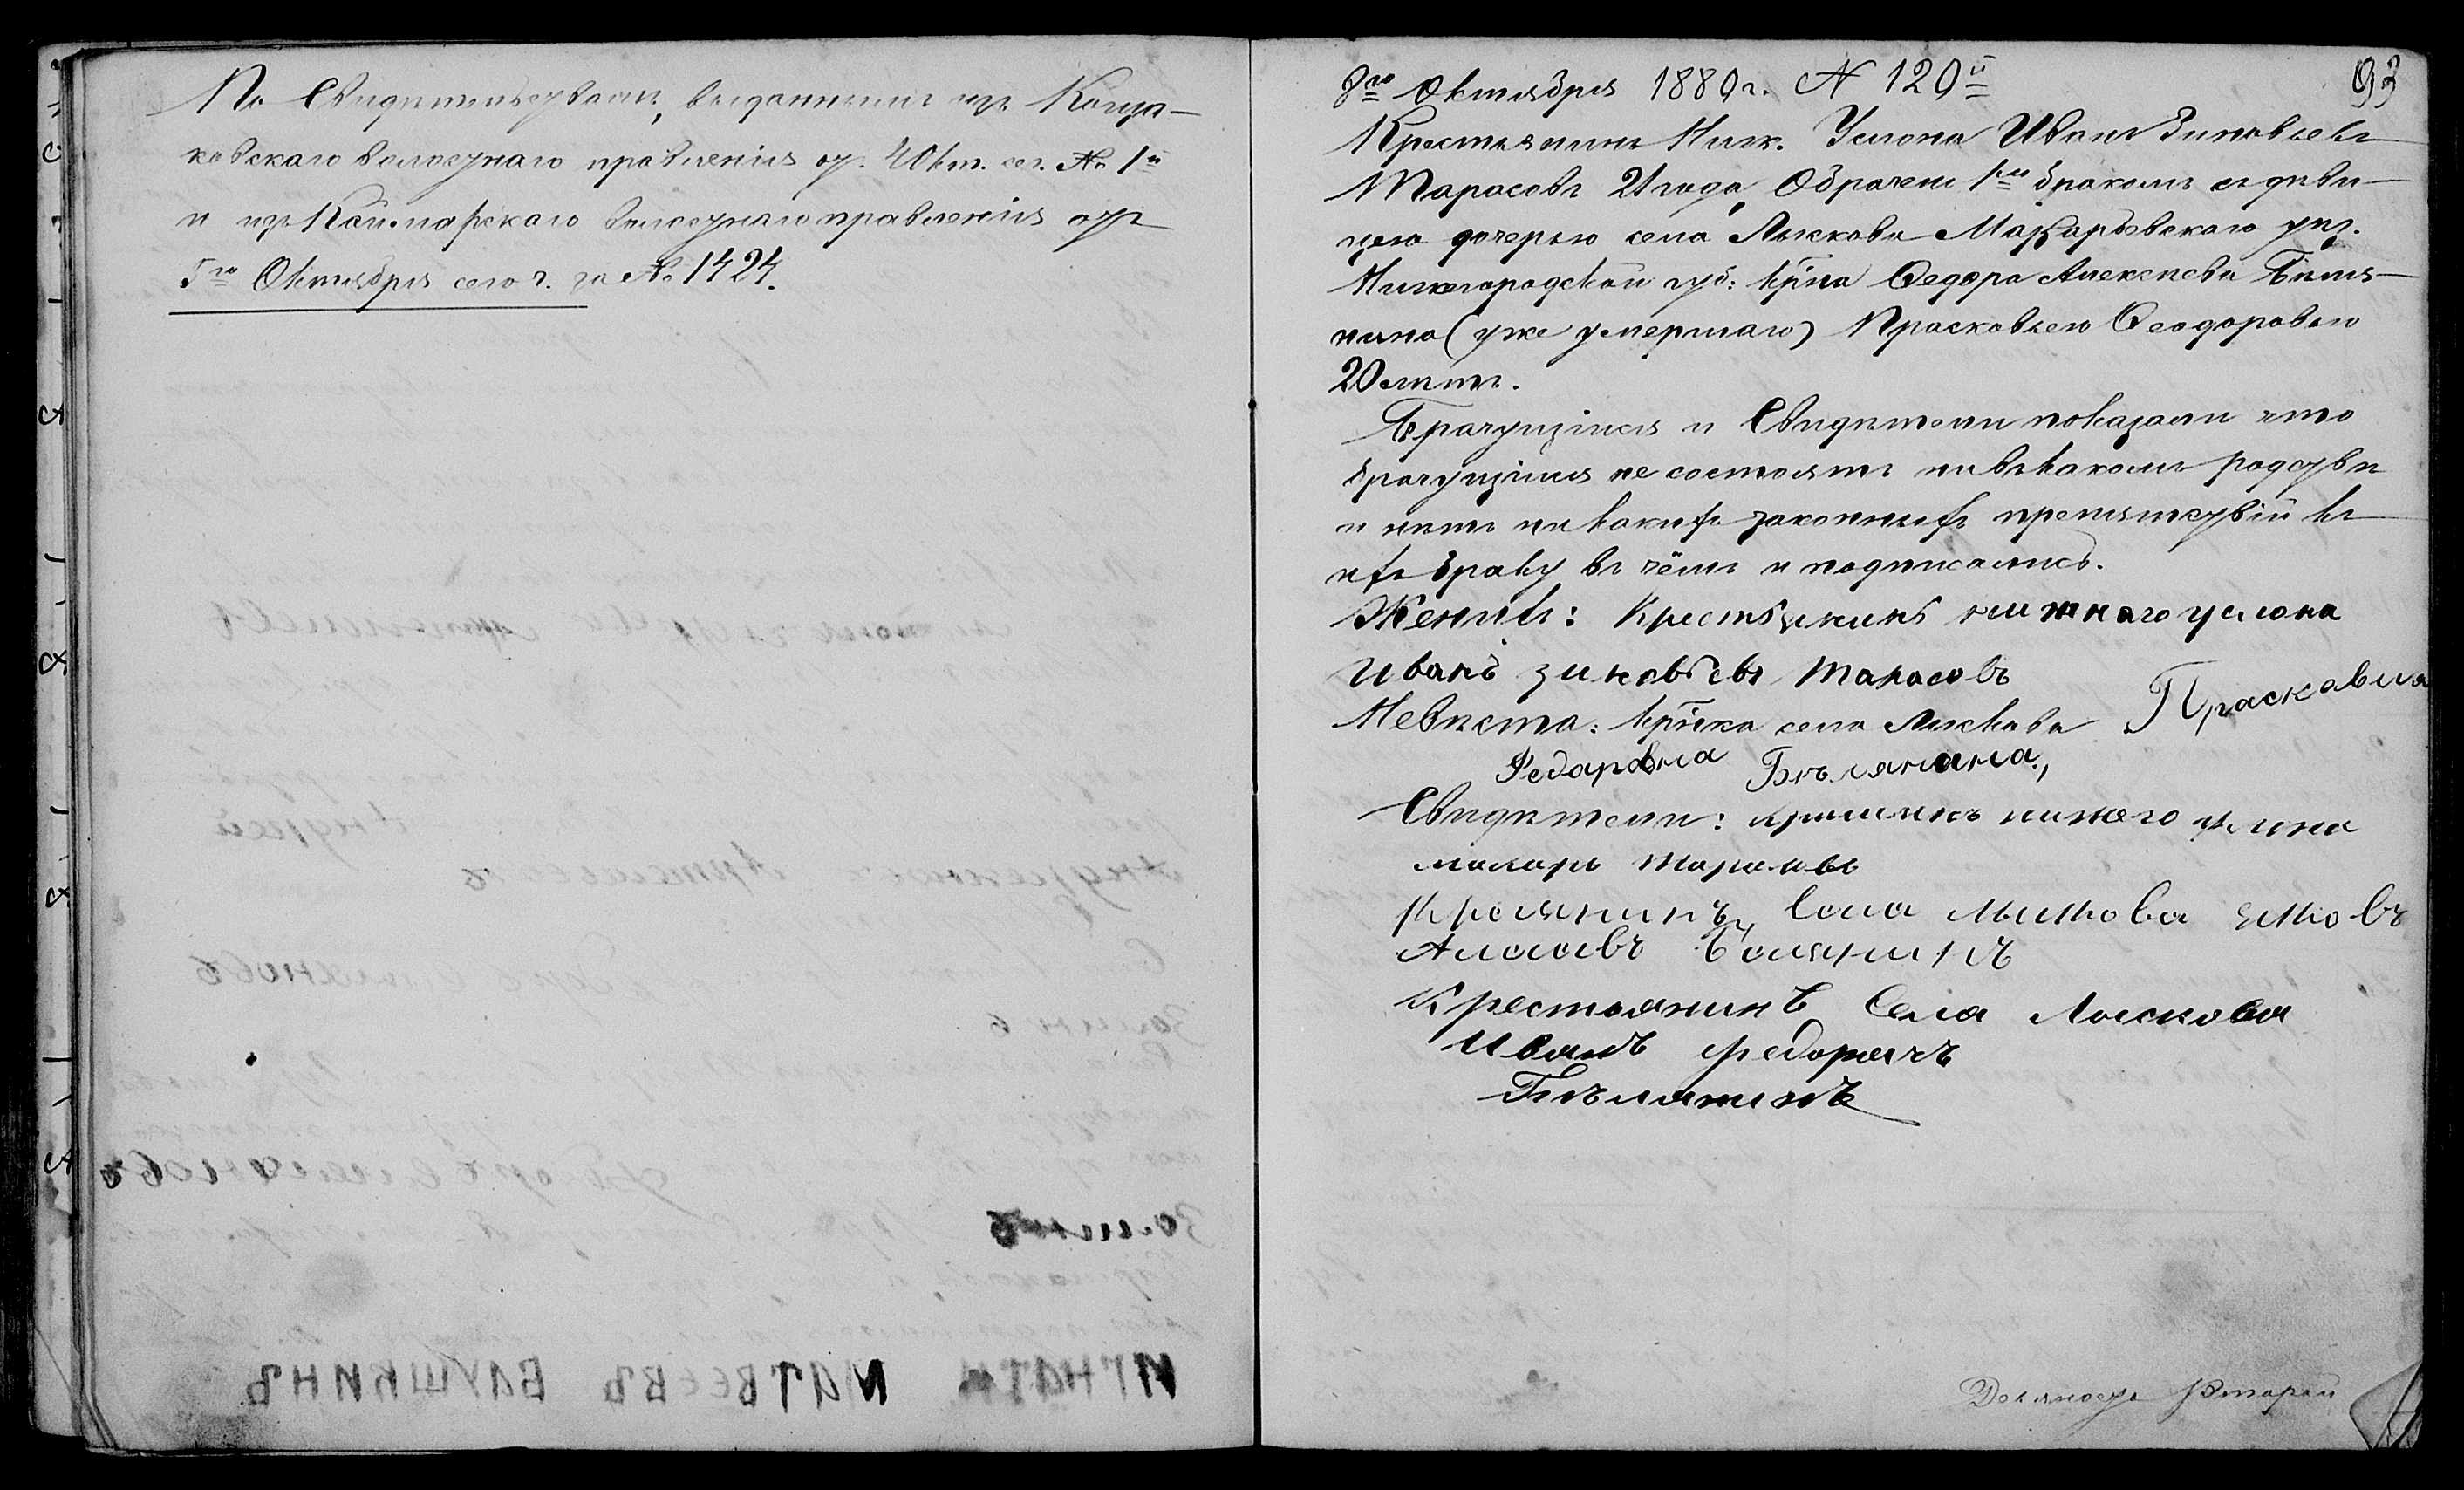 По Свидетельствамъ, выданнымъ изъ Коща-
ковскаго волостнаго правленія отъ 4 Окт. сег. № 1й
и изъ Каймарскаго волостнаго правленія отъ
5го Октября сего г. за № 1424.
93
8го Октября 1889 г. № 120й
Крестьянинъ Ниж. Услона Иванъ Зиновьевъ
Тарасовъ 21 года, Обрачен 1мъ бракомъ съ дѣви-
цею дочерью села Лыскова Макарьевскаго уѣз.
Нижегородской губ: кр̃на Ѳедора Алексѣева Бѣля-
нина (уже умершаго) Прасковьею Ѳеодоровою
20 лѣтъ.
Брачущіися и Свидѣтели показали что
брачущіися не состоятъ ни въ какомъ родствѣ
и нѣтъ ни какихъ законныхъ препятствій къ
ихъ браку въ чёмъ и подписались.
Женихъ: Крестьянинъ нижнаго услона
Иванъ зиновьевъ Тарасовъ
Невѣста: кр̃нка села Лыскова Праскавия
Федаровна Бѣлянина,
Свидѣтели: крестьянинъ нижего услона
макаръ тарасовъ
Кресянинъ Села Лыскова
Бѣлянинъ
Крестьянинъ Села Лыскова
Иванъ Федоровъ
Бѣлянинъ
Девяносто Второй